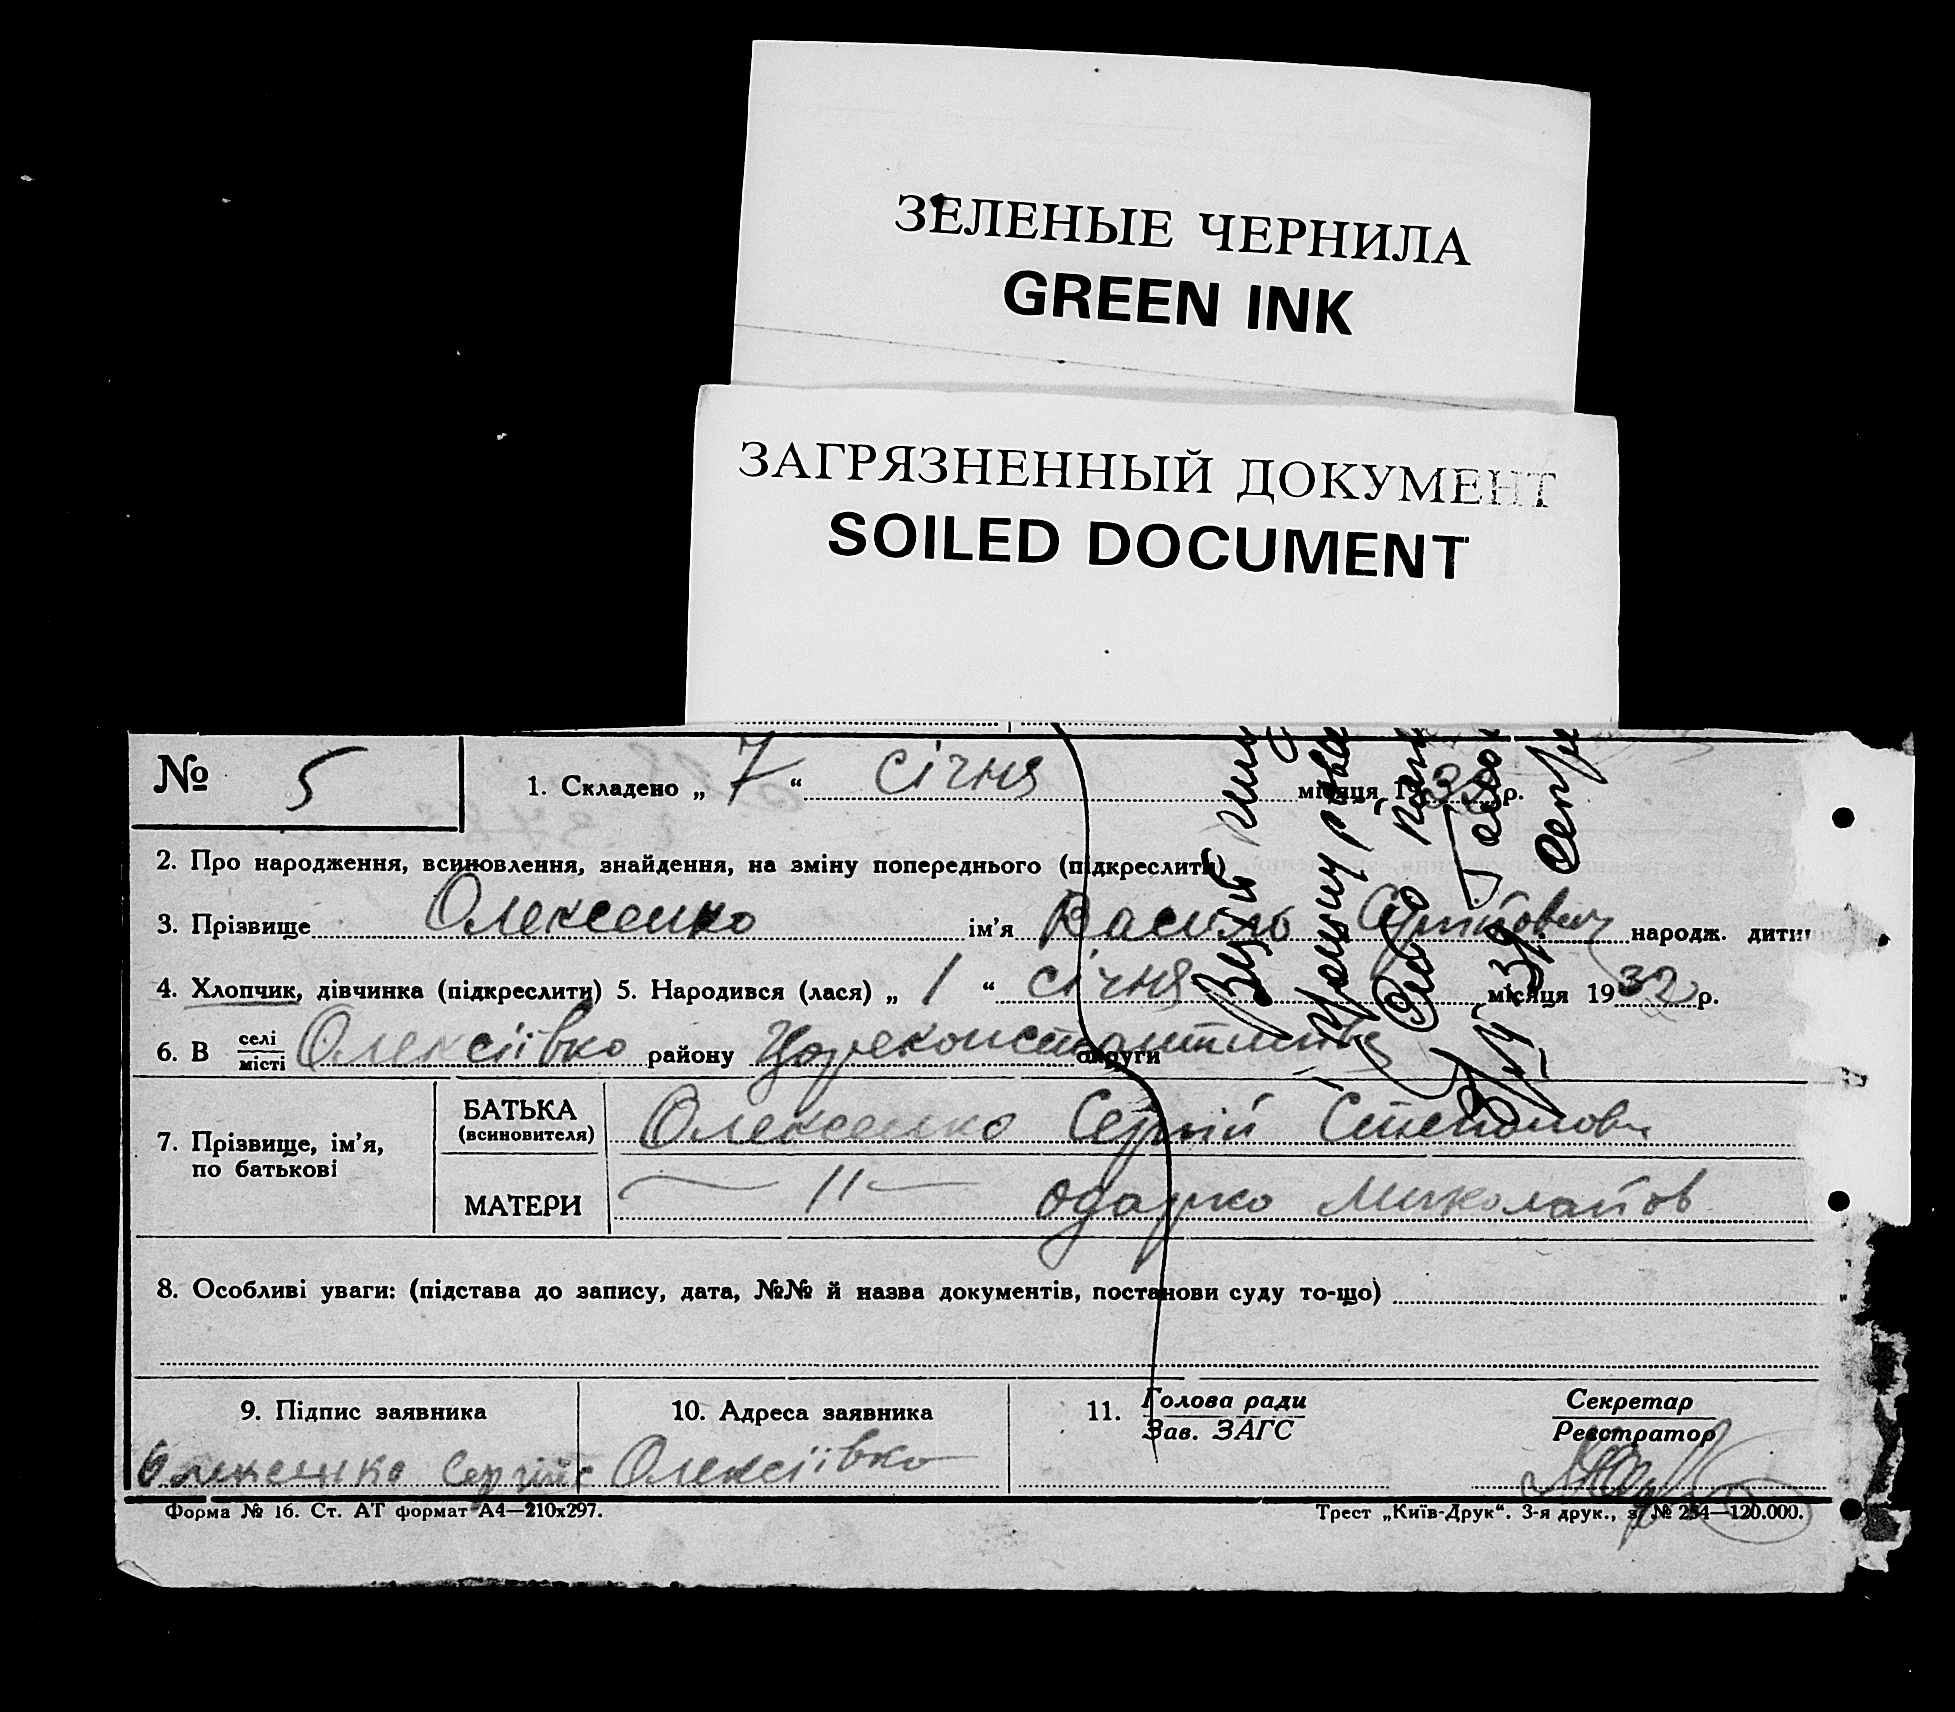 ЗЕЛЕНЫЕ ЧЕРНИЛА
GREEN INK
ЗАГРЯЗНЕННЫЙ ДОКУМЕНТ
SOILED DOCUMENT
№ 5
1. Складено „ 7 “ січня місяця 1932 р.
2. Про народження, всиновлення, знайдення, на зміну попереднього (підкреслити)
3. Прізвище Олексенко ім'я Василь Сергійович народж. дити
4. Хлопчик, дівчинка (підкреслити) 5. Народився (лася) „ 1 “ січня місяця 1932 р.
6. В селі місті Олексіївко району Цареконстантинів округи
7. Прізвище, ім'я, по батькові
БАТЬКА (всиновителя) Олексенко Сергій Степанови
МАТЕРИ — 11 — Одарко Миколаїов
8. Особливі уваги: (підстава до запису, дата, №№ й назва документів, постанови суду то-що)
9. Підпис заявника
10. Адреса заявника
11. Голова ради Зав. ЗАГС
Секретар Реєстратор
Олексенко Сергій Олексіївко
Форма № 16. Ст. АТ формат А4—210х297.
Трест „Київ-Друк“. 3-я друк., з. № 254—120.000.